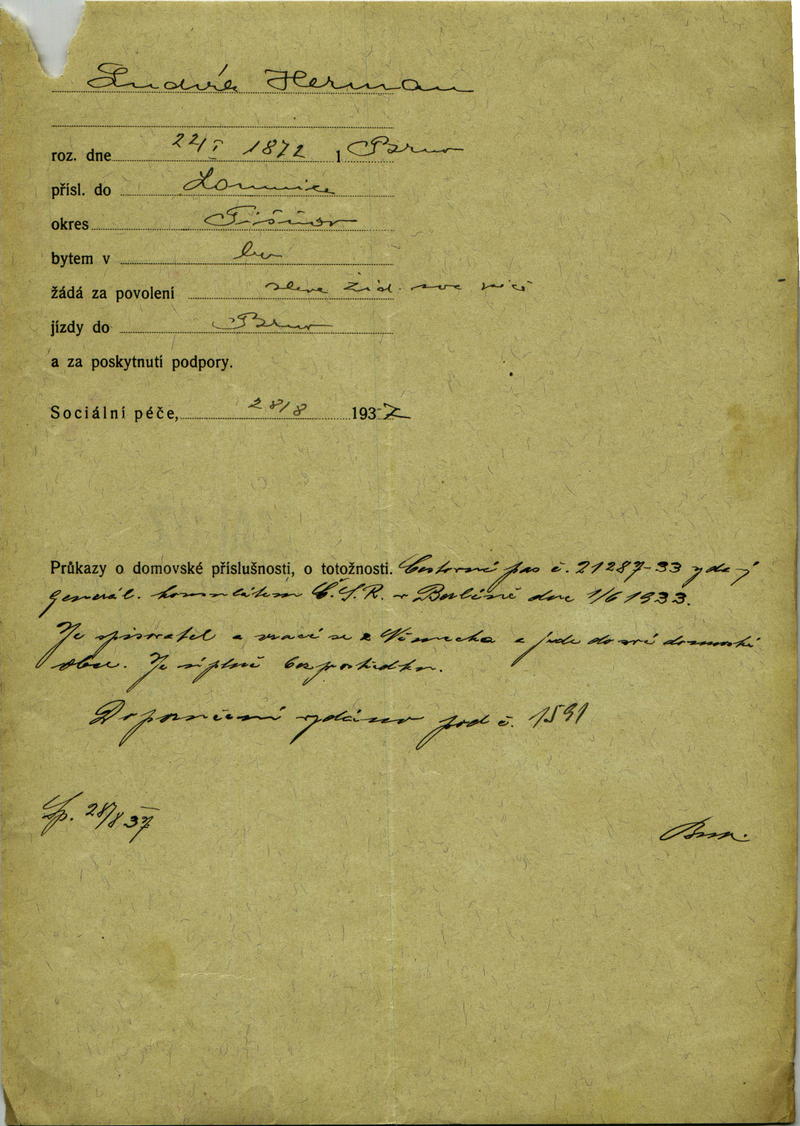 Ludvík Herman
roz. dne 22/I 1872 i Brno
přísl. do Lomnice
okres Tišnov
bytem v
žádá za povolení sleva žid.
jízdy do Brno
a za poskytnutí podpory.
Sociální péče, 28/8 1937
Průkazy o domovské příslušnosti, o totožnosti. Cestovní pas č. 21287-33 vydaný
generál. konsulátem Č.S.R. v Berlíně dne 1/6 1933.
Je spisovatel a vrací se z Německa a jede do své domovské
obce. Je úplně bez prostředků.
Doporučení vydáno pod č. 1591
Sp. 28/8 37